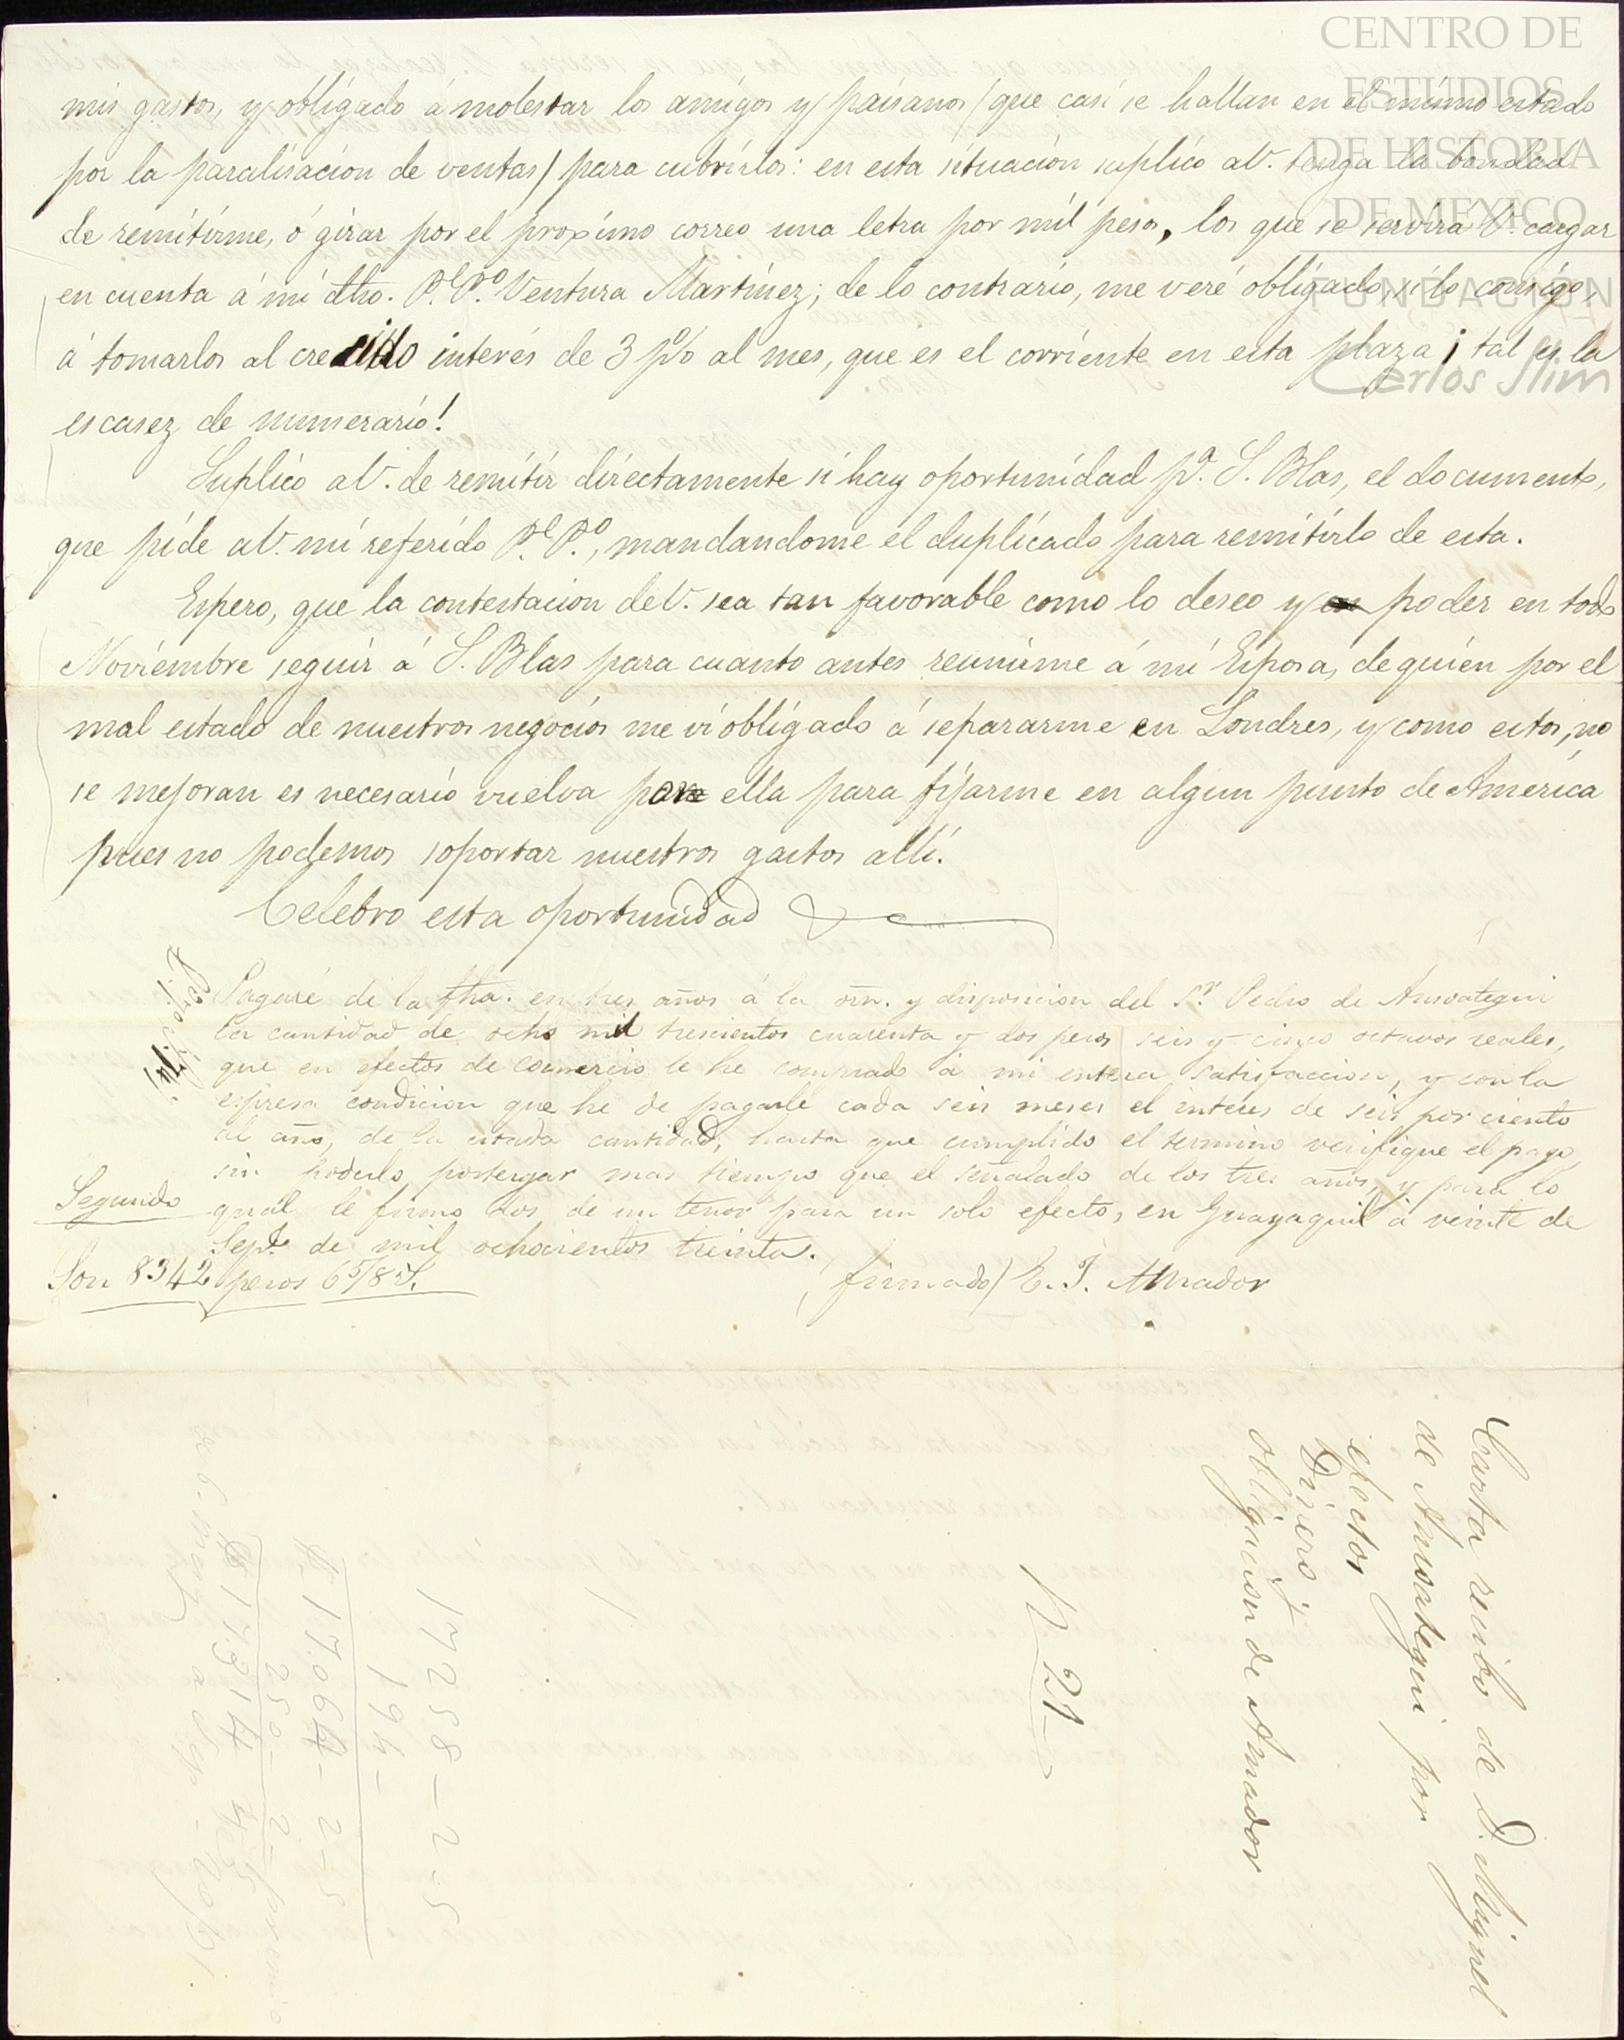 mis gastos, y obligado á molestar los amigos y paisanos (que casi se hallan en el mismo estado
por la paralisacion de ventas) para cubrirlos: en esta situacion suplico a V. tenga la bondad
de remitirme, ó girar por el proximo correo una letra por mil pesos, los que se servira V. cargar
en cuenta á mi dho. P.e P.o Ventura Martinez; de lo contrario, me veré obligado, si lo consigo,
á tomarlos al crecido interés de 3 p% al mes, que es el corriente en esta plaza ¡tal es la
escasez de numerario!
Suplico a V. de remitir directamente si hay oportunidad pa. S. Blas, el documento,
que pide a V. mi referido P.e P.o, mandandome el duplicado para remitirlo de esta.
Espero, que la contestacion de V. sea tan favorable como lo deseo y poder en todo
Noviembre seguir á S. Blas para cuanto antes reunirme á mi Esposa, de quien por el
mal estado de nuestros negocios me vi obligado á separarme en Londres, y como estos, no
se mejoran es necesario vuelva por ella para fijarme en algun punto de America
pues no podemos soportar nuestros gastos alli.
Celebro esta oportunidad
Pagaré de la fha. en tres años á la orn. y disposicion del Sr. Pedro de Ansoategui
la cantidad de ocho mil trescientos cuarenta y dos pesos seis y cinco octavos reales,
que en efectos de comercio le he comprado á mi entera satisfaccion, y con la
espresa condicion que he de pagarle cada seis meses el interes de seis por ciento
al año, de la citada cantidad, hasta que cumplido el termino verifique el pago,
sin poderlo postergar mas tiempo que el señalado de los tres años, y para lo
qual le firmo dos de un tenor para un solo efecto, en Guayaquil á veinte de
Sept.e de mil ochocientos treinta.
Segundo
Son 8342 pesos 6 5/8 rs.
firmado) E. T. Amador
Carta recibo de D. Miguel
de Ansoategui por
efectos
Dinero y
obligacion de Amador
N 21
17258-2.5
194-
$ 17.064-2-5
250-2- premio
$ 17.314-4.5